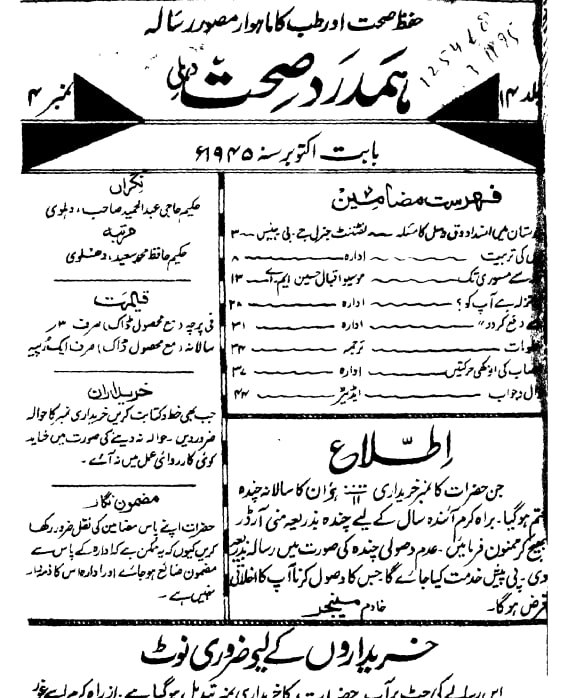 حفظ صحت اور طب کا ماہوار مصور رسالہ
ہمدرد صحت دہلی
جلد ۱۴
نمبر ۴
بابت اکتوبر سنہ ۱۹۴۵ء
فہرست مضامین
میں انسداد دق و سل کا مسئلہ لفٹننٹ جنرل جے۔ بی ہینس ۳
کی تربیت ادارہ ۸
سے مسوری تک موسیو اقبال حسین ایم اے ۱۳
آپ کو؟ ادارہ ۲۸
دفع کردو" ادارہ ۳۱
ترجمہ ۳۴
کی انوکھی حرکتیں ادارہ ۳۷
وجواب ایڈیٹر ۴۴
اِطّلاع
جن حضرات کا نمبر خریداری ہو ان کا سالانہ چندہ
ختم ہوگیا۔ براہ کرم آئندہ سال کے لیے چندہ بذریعہ منی آرڈر
بھیج کر ممنون فرمائیں۔ عدم وصولی چندہ کی صورت میں رسالہ بذریعہ
وی۔ پی پیش خدمت کیا جائے گا جس کا وصول کرنا آپ کا اخلاقی
فرض ہوگا۔ خادم مینیجر
نگراں
حکیم حاجی عبدالحمید صاحب، دہلوی
مرتبہ
حکیم حافظ محمد سعید، دہلوی
قیمت
فی پرچہ (مع محصول ڈاک) صرف ۳؍
سالانہ (مع محصول ڈاک) صرف ایک روپیہ
خریداران
جب بھی خط و کتابت کریں خریداری نمبر کا حوالہ
ضرور دیں۔ حوالہ نہ دینے کی صورت میں شاید
کوئی کارروائی عمل میں نہ آئے۔
مضمون نگار
حضرات اپنے پاس مضامین کی نقل ضرور رکھا
کریں کیوں کہ یہ ممکن ہے کہ ادارہ کے پاس سے
مضمون ضائع ہو جائے اور ادارہ اس کا ذمہ دار
نہیں ہے۔
خریداروں کے لیے ضروری نوٹ
اس رسالے کی چٹ پر آپ کا خریداری نمبر تبدیل ہوگیا ہے۔ ازراہ کرم اسے